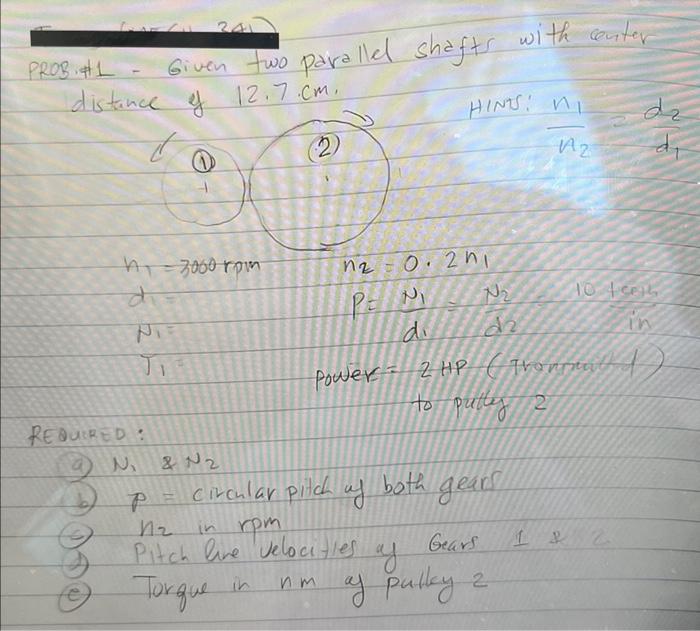 341)
PROB. #1 - Given two parallel shafts with center
distance of 12.7 cm.
HINTS: n1/n2 = d2/d1
1
2
n1 = 3000 rpm
n2 = 0.2 n1
d1 =
P = N1/d1 = N2/d2 = 10 teeth/in
N1 =
T1 =
Power = 2 HP (Transmitted)
to pulley 2
REQUIRED:
a) N1 & N2
b) p = circular pitch of both gears
c) n2 in rpm
d) Pitch line velocities of Gears 1 & 2
e) Torque in nm of pulley 2